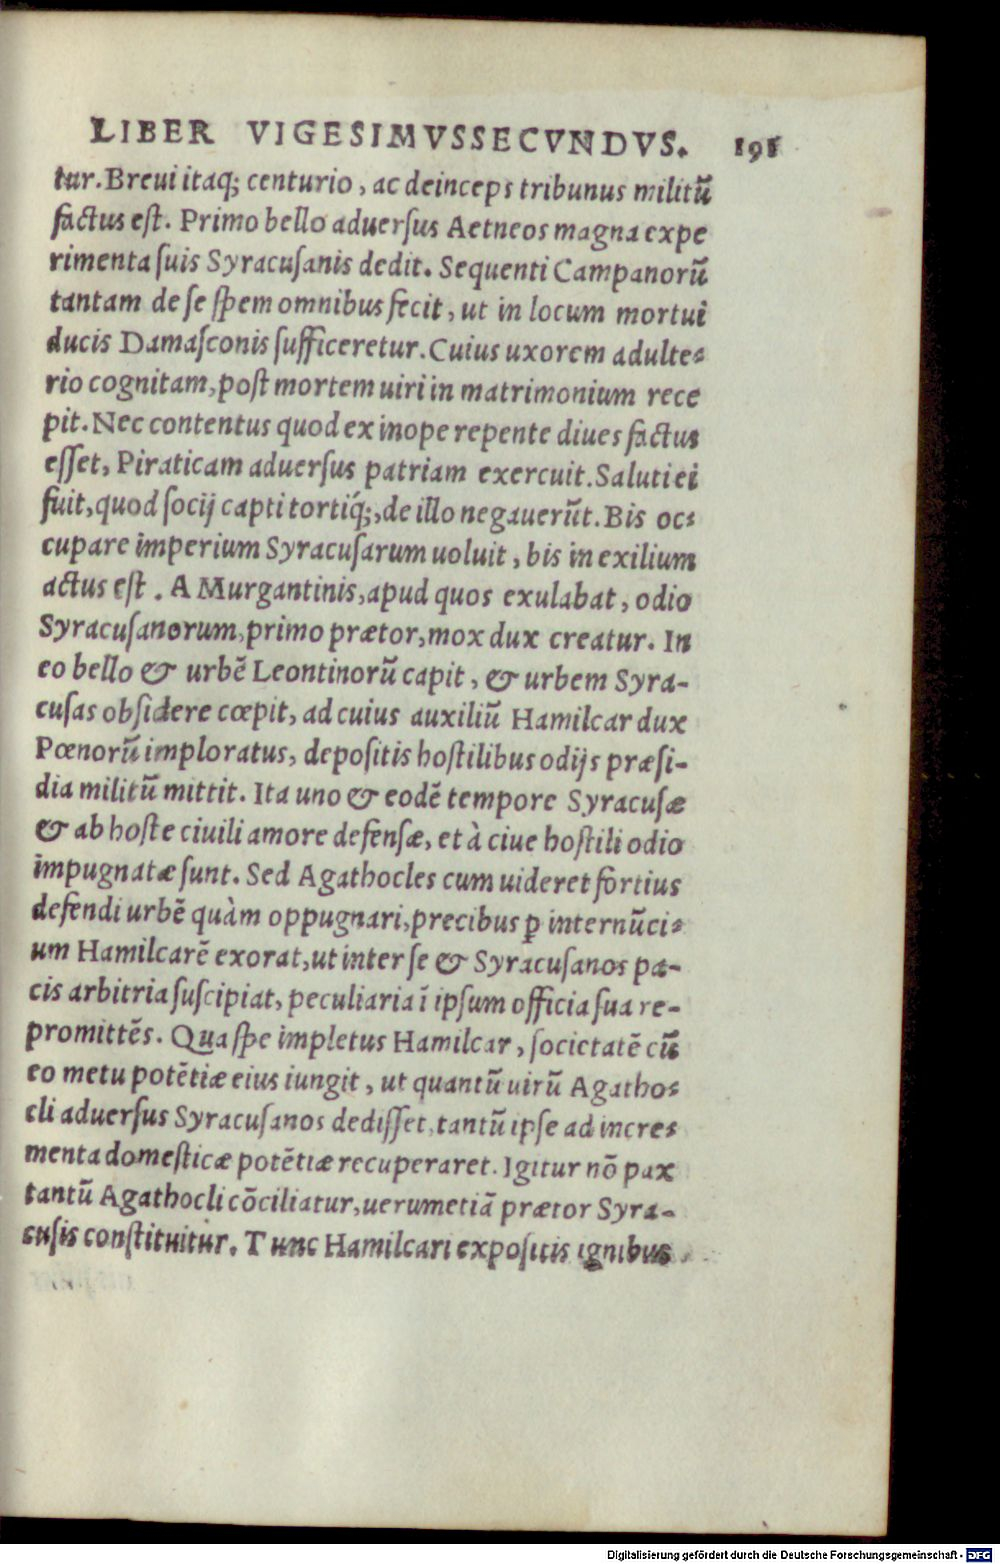 LIBER VIGESIMVSSECVNDVS. 191
tur. Breui itaq; centurio, ac deinceps tribunus militũ
factus est. Primo bello aduersus Aetneos magna expe
rimenta suis Syracusanis dedit. Sequenti Campanorũ
tantam de se spem omnibus fecit, ut in locum mortui
ducis Damasconis sufficeretur. Cuius uxorem adulte-
rio cognitam, post mortem uiri in matrimonium rece
pit. Nec contentus quod ex inope repente diues factus
esset, Piraticam aduersus patriam exercuit. Saluti ei
fuit, quod socij capti tortiq́;, de illo negauerũt. Bis oc-
cupare imperium Syracusarum uoluit, bis in exilium
actus est. A Murgantinis, apud quos exulabat, odio
Syracusanorum, primo prætor, mox dux creatur. In
eo bello & urbẽ Leontinorũ capit, & urbem Syra-
cusas obsidere cœpit, ad cuius auxiliũ Hamilcar dux
Pœnorũ imploratus, depositis hostilibus odijs præsi-
dia militũ mittit. Ita uno & eodẽ tempore Syracusæ
& ab hoste ciuili amore defensæ, et à ciue hostili odio
impugnatæ sunt. Sed Agathocles cum uideret fortius
defendi urbẽ quàm oppugnari, precibus ꝑ internũci-
um Hamilcarẽ exorat, ut inter se & Syracusanos pa-
cis arbitria suscipiat, peculiaria ĩ ipsum officia sua re-
promittẽs. Qua spe impletus Hamilcar, societatẽ cũ
eo metu potẽtiæ eius iungit, ut quantũ uirũ Agatho-
cli aduersus Syracusanos dedisset, tantũ ipse ad incre-
menta domesticæ potẽtiæ recuperaret. Igitur nõ pax
tantũ Agathocli cõciliatur, uerumetiã prætor Syra-
cusis constituitur. Tunc Hamilcari expositis ignibus
Digitalisierung gefördert durch die Deutsche Forschungsgemeinschaft - DFG